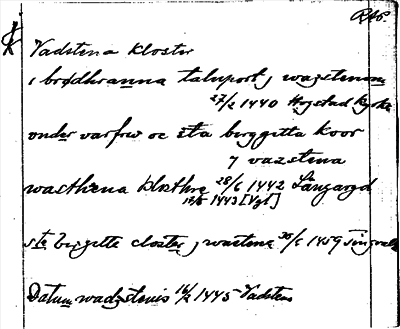 RAp.
K Vadstena kloster
i brødhranna taluport j wazstenom
27/2 1440 Hogstad kyrka
onder varfrw oc sta byrggitta koor
j vazstena
wasthena klothre 28/6 1442 Långaryd
1443 [Vgl]
ste byrgitte closter j wastena 30/6 1459
Datum wadzstenis 16/2 1445 Vadstena